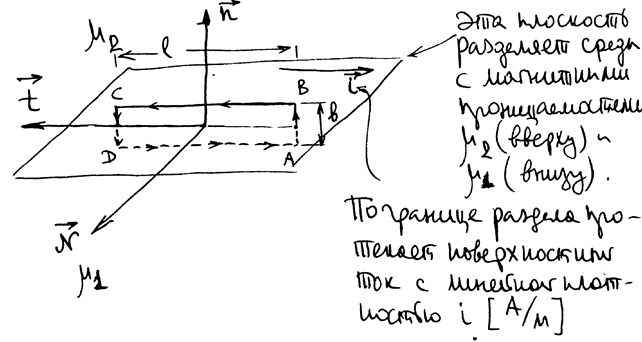 n
μ2
l
Эта плоскость
разделяет среды
с магнитными
проницаемостями
μ2 (вверху) и
μ1 (внизу).
i
t
C
B
b
D
A
N
μ1
По границе раздела про-
текает поверхностный
ток с линейной плот-
ностью i [А/м]